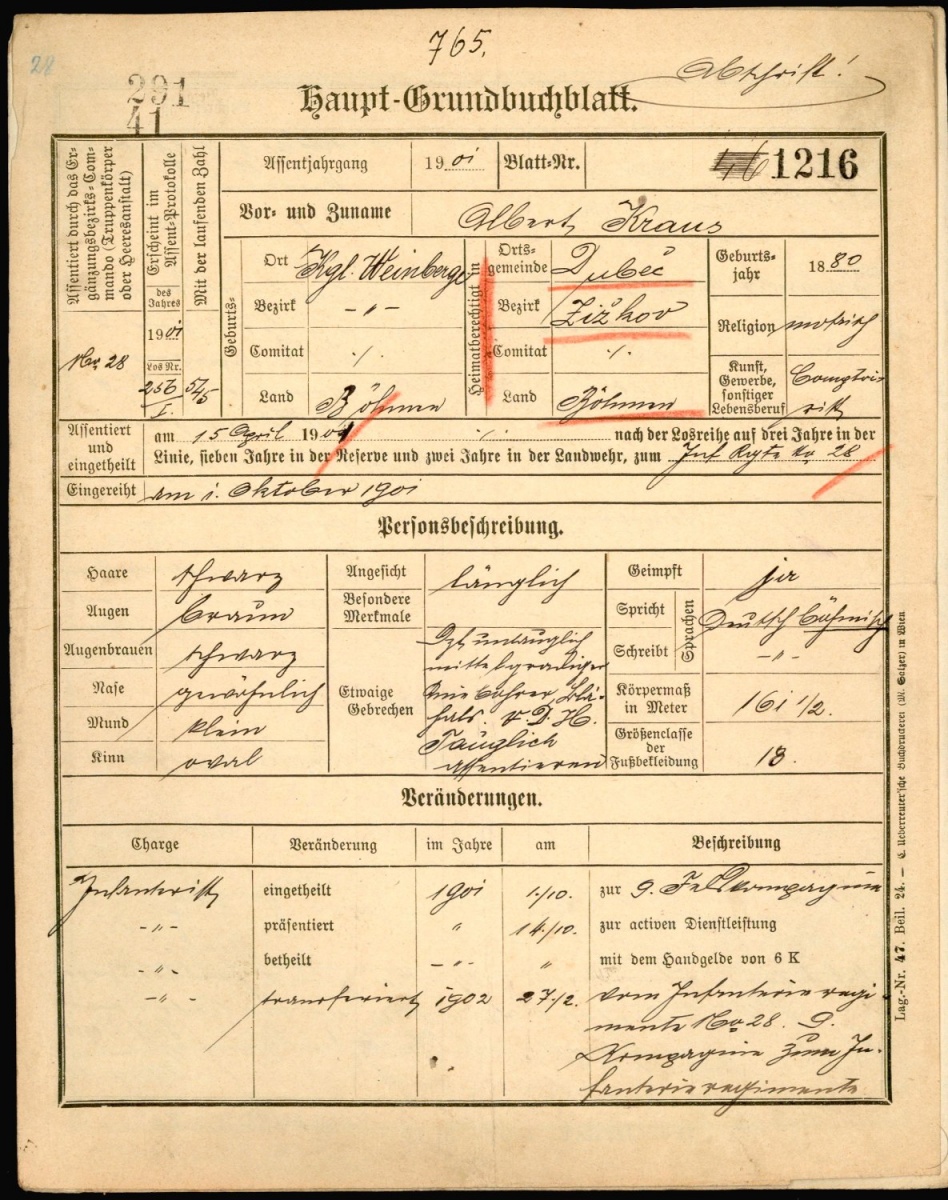 765.
28
Abschrift!
291
41
Haupt-Grundbuchblatt.
Assentiert durch das Er-
gänzungsbezirks-Com-
mando (Truppenkörper
oder Heeresanstalt)
No 28
Erscheint im
Assent-Protokolle
des
Jahres
1901
Los Nr.
256
I.
Mit der laufenden Zahl
545
Assentjahrgang 1901 Blatt-Nr. 1216
Vor- und Zuname Albert Kraus
Geburts-
Ort Kgl. Weinberge
Bezirk -〃-
Comitat ·/·
Land Böhmen
Heimatberechtigt in
Orts-
gemeinde Dubeč
Bezirk Žižkov
Comitat ·/·
Land Böhmen
Geburts-
jahr 1880
Religion mosaisch
Kunst,
Gewerbe,
sonstiger
Lebensberuf
Comptoi-
rist
Assentiert
und
eingetheilt
am 15 April 1901 ·/· nach der Losreihe auf drei Jahre in der
Linie, sieben Jahre in der Reserve und zwei Jahre in der Landwehr, zum Inf Rgte No 28
Eingereiht am 1. Oktober 1901
Personsbeschreibung.
Haare schwarz
Augen braun
Augenbrauen schwarz
Nase gewöhnlich
Mund klein
Kinn oval
Angesicht länglich
Besondere
Merkmale
Etwaige
Gebrechen
Dzt untauglich
mittelgradiger
Blä-
hals. v. D. H.
Tauglich
assentieren
Geimpft ja
Spricht Deutsch böhmisch
Schreibt -〃-
Sprachen
Körpermaß
in Meter 161 1/2.
Größenclasse
der
Fußbekleidung 13.
Veränderungen.
Charge Veränderung im Jahre am Beschreibung
Infanterist eingetheilt 1901 1./10. zur 9. Feldkompagnie
-〃- präsentiert 〃 14./10. zur activen Dienstleistung
-〃- betheilt -〃- 〃 mit dem Handgelde von 6 K
-〃- transferiert 1902 27./2. vom Infanterieregi-
mente No 28. 9.
Kompagnie zum In-
fanterieregimente
Lag.-Nr. 47. Beil. 24. — C. Ueberreuter'sche Buchdruckerei (M. Salzer) in Wien